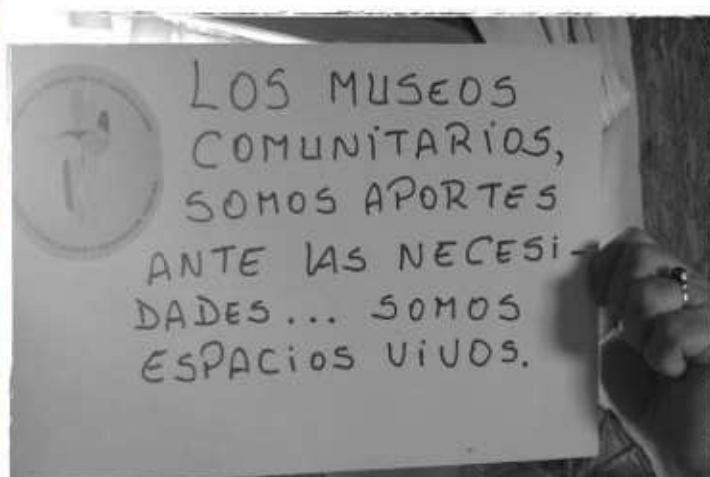 LOS MUSEOS
COMUNITARIOS,
SOMOS APORTES
ANTE LAS NECESI-
DADES... SOMOS
ESPACIOS VIVOS.